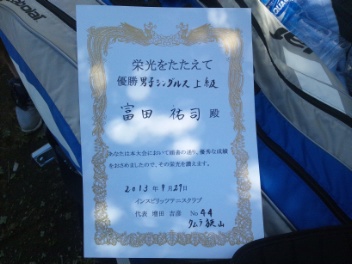 栄光をたたえて
優勝 男子シングルス上級
富田 祐司 殿
あなたは本大会において頭書のとおり、優秀な成績
をおさめましたので、その栄光を讃えます。
2013年9月29日
インスピリッツテニスクラブ
代表 増田 吉彦 No 44
Babolat